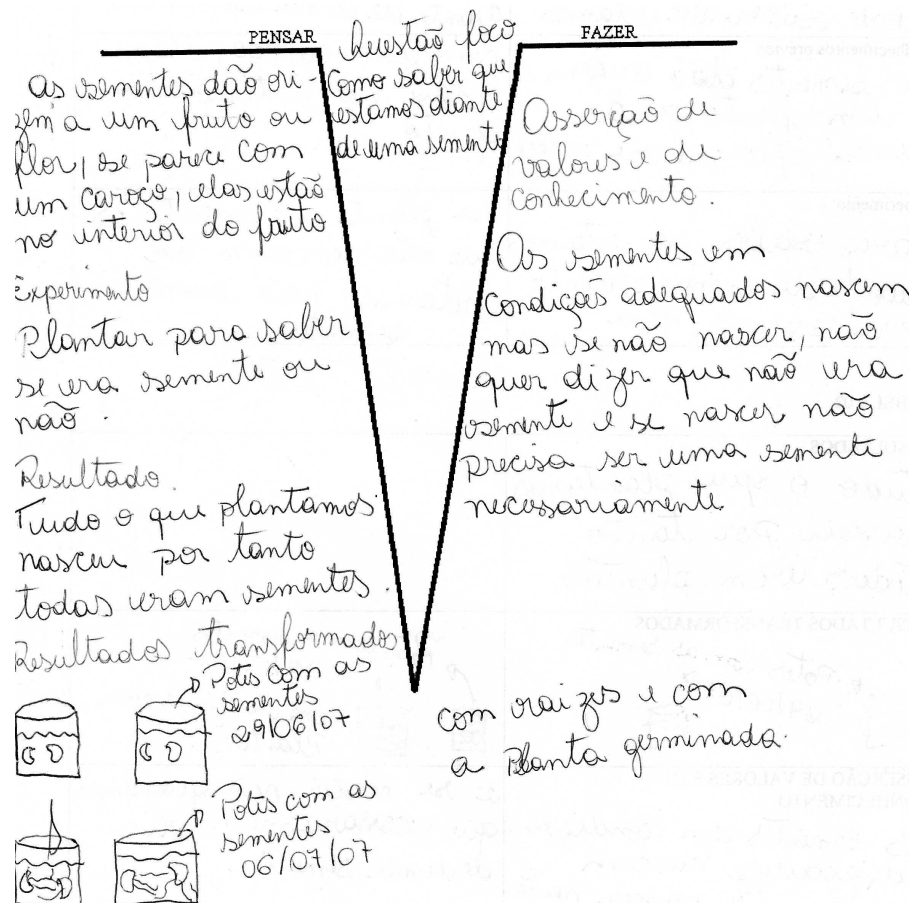 PENSAR
As sementes dão ori-
gem a um fruto ou
flor, se parece com
um caroço, elas estão
no interior do fruto
Experimento
Plantar para saber
se era semente ou
não.
Resultado.
Tudo o que plantamos
nasceu por tanto
todas eram sementes.
Resultados transformados
Potes com as
sementes
29/06/07
Potes com as
sementes
06/07/07
Questão foco
Como saber que
estamos diante
de uma semente
FAZER
Asserção de
valores e de
conhecimento.
As sementes em
condições adequados nascem
mas se não nascer, não
quer dizer que não era
semente e se nascer não
precisa ser uma semente
necessariamente
com raizes e com
a planta germinada.